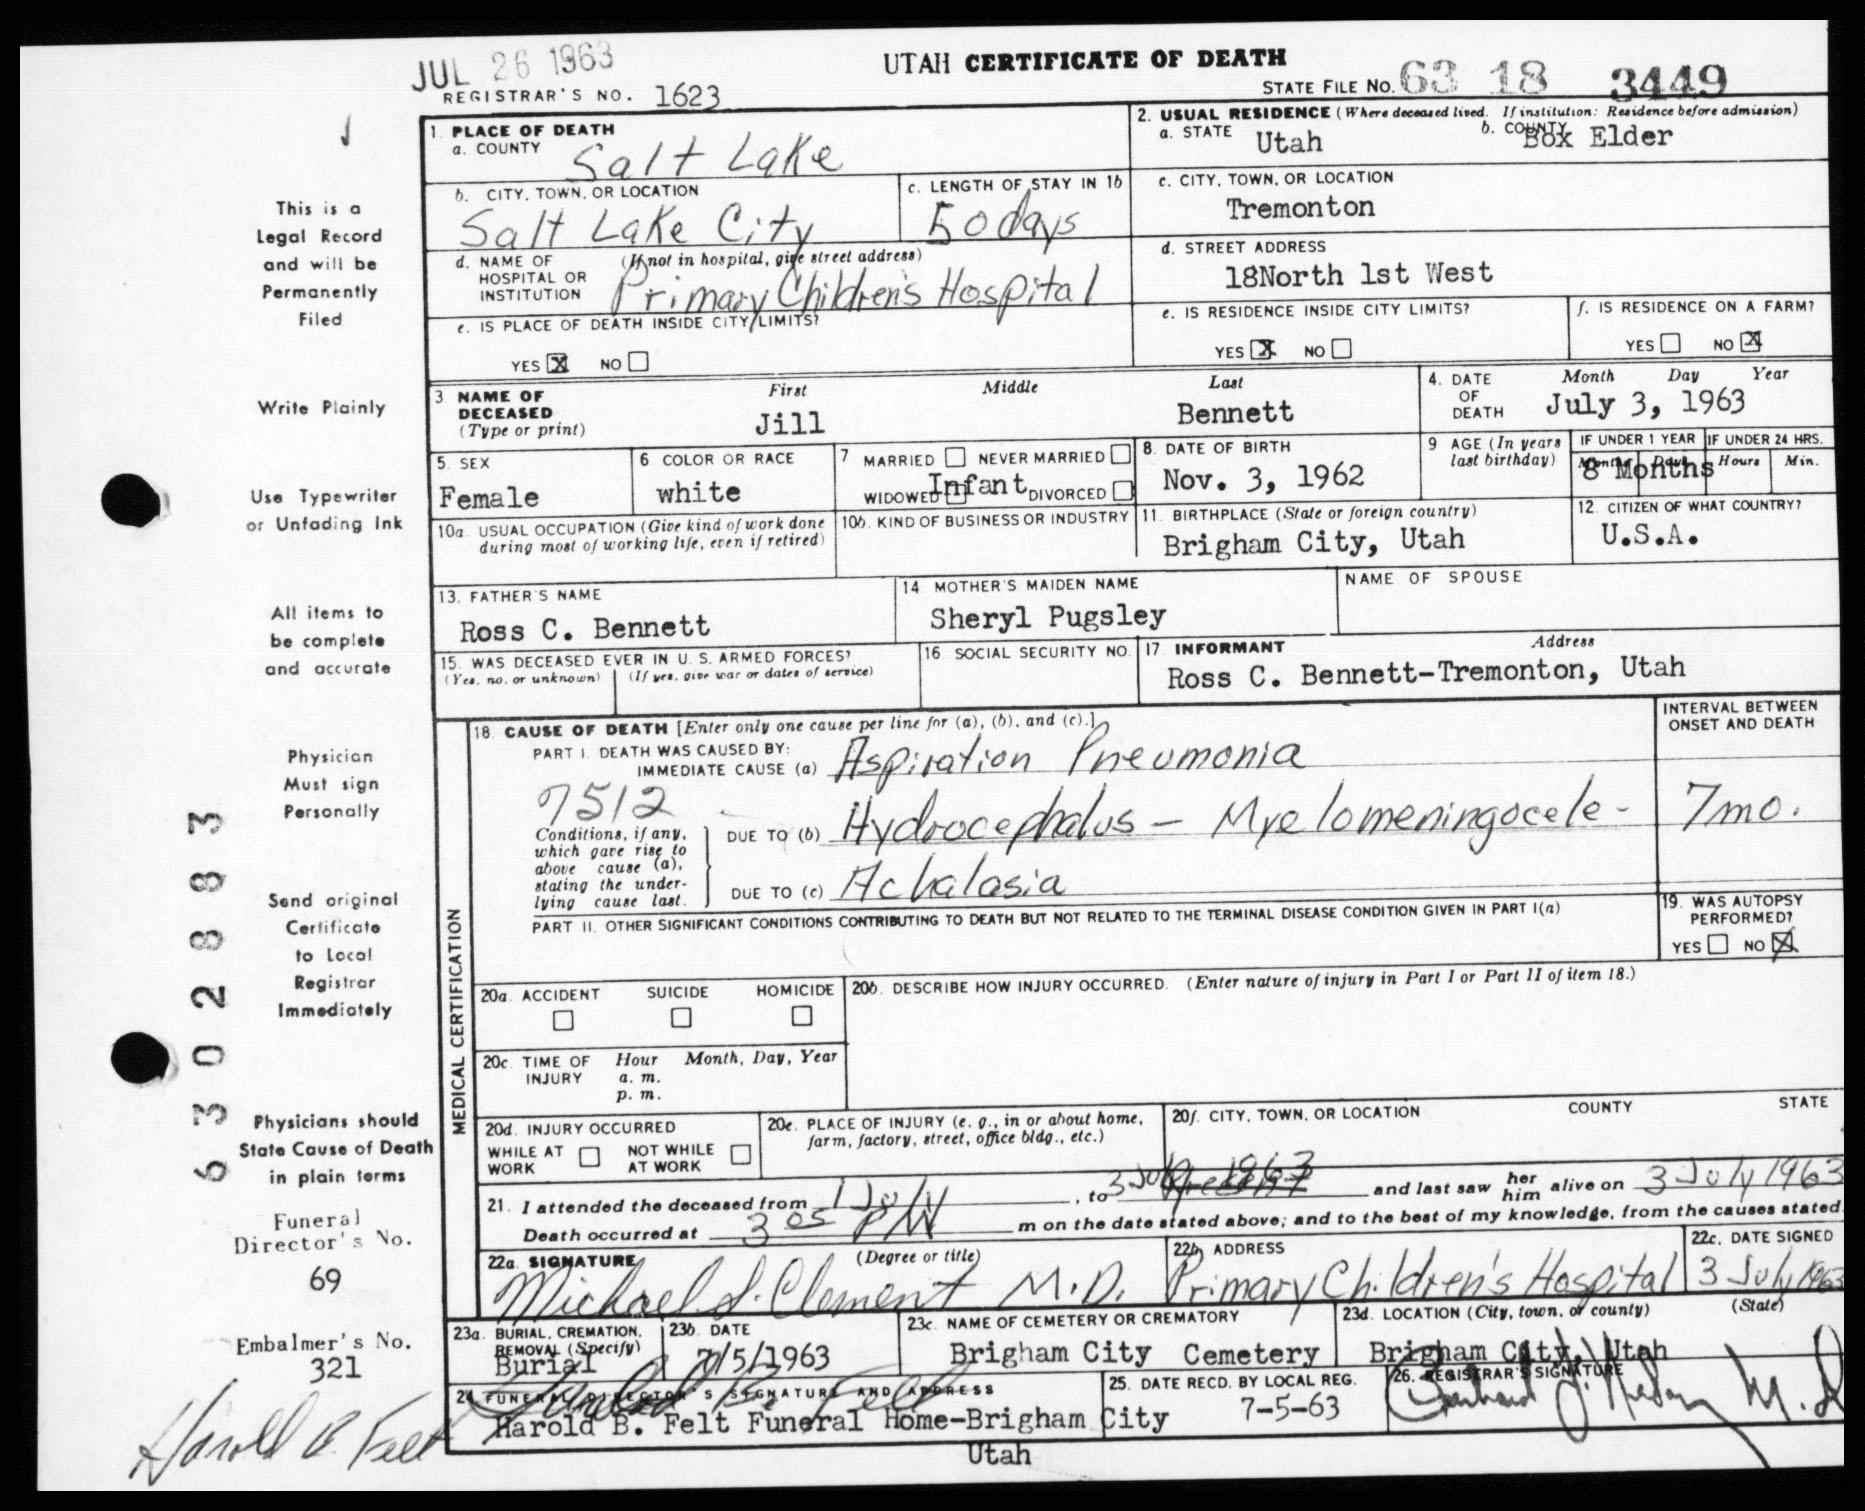 JUL 26 1963
UTAH CERTIFICATE OF DEATH
REGISTRAR'S NO. 1623
STATE FILE NO. 63 18 3449
1. PLACE OF DEATH
a. COUNTY Salt Lake
2. USUAL RESIDENCE (Where deceased lived. If institution: Residence before admission)
a. STATE Utah
b. COUNTY Box Elder
b. CITY, TOWN, OR LOCATION
Salt Lake City
c. LENGTH OF STAY IN 1b
50 days
c. CITY, TOWN, OR LOCATION
Tremonton
d. NAME OF HOSPITAL OR INSTITUTION (If not in hospital, give street address)
Primary Children's Hospital
d. STREET ADDRESS
18North 1st West
e. IS PLACE OF DEATH INSIDE CITY LIMITS?
YES X NO
e. IS RESIDENCE INSIDE CITY LIMITS?
YES X NO
f. IS RESIDENCE ON A FARM?
YES NO X
3. NAME OF DECEASED (Type or print)
First Middle Last
Jill Bennett
4. DATE OF DEATH
Month Day Year
July 3, 1963
5. SEX
Female
6 COLOR OR RACE
white
7 MARRIED NEVER MARRIED
WIDOWED Infant DIVORCED
8. DATE OF BIRTH
Nov. 3, 1962
9 AGE (In years last birthday)
IF UNDER 1 YEAR
Months Days
8 Months
IF UNDER 24 HRS.
Hours Min.
10a. USUAL OCCUPATION (Give kind of work done during most of working life, even if retired)
10b. KIND OF BUSINESS OR INDUSTRY
11. BIRTHPLACE (State or foreign country)
Brigham City, Utah
12. CITIZEN OF WHAT COUNTRY?
U.S.A.
13. FATHER'S NAME
Ross C. Bennett
14 MOTHER'S MAIDEN NAME
Sheryl Pugsley
NAME OF SPOUSE
15. WAS DECEASED EVER IN U. S. ARMED FORCES?
(Yes, no, or unknown) (If yes, give war or dates of service)
16. SOCIAL SECURITY NO.
17. INFORMANT Address
Ross C. Bennett-Tremonton, Utah
MEDICAL CERTIFICATION
18. CAUSE OF DEATH [Enter only one cause per line for (a), (b), and (c).]
INTERVAL BETWEEN ONSET AND DEATH
PART I. DEATH WAS CAUSED BY:
IMMEDIATE CAUSE (a) Aspiration Pneumonia
7512
Conditions, if any, which gave rise to above cause (a), stating the underlying cause last.
DUE TO (b) Hydrocephalus - Myelomeningocele - 7mo.
DUE TO (c) Achalasia
PART II. OTHER SIGNIFICANT CONDITIONS CONTRIBUTING TO DEATH BUT NOT RELATED TO THE TERMINAL DISEASE CONDITION GIVEN IN PART I(a)
19. WAS AUTOPSY PERFORMED?
YES NO X
20a. ACCIDENT SUICIDE HOMICIDE
20b. DESCRIBE HOW INJURY OCCURRED. (Enter nature of injury in Part I or Part II of item 18.)
20c. TIME OF INJURY
Hour Month, Day, Year
a. m.
p. m.
20d. INJURY OCCURRED
WHILE AT WORK
NOT WHILE AT WORK
20e. PLACE OF INJURY (e. g., in or about home, farm, factory, street, office bldg., etc.)
20f. CITY, TOWN, OR LOCATION COUNTY STATE
21. I attended the deceased from 1 July, to 3 July 1963 present and last saw her him alive on 3 July 1963
Death occurred at 3 05 PM m on the date stated above; and to the best of my knowledge, from the causes stated.
22a. SIGNATURE (Degree or title)
Michael J. Clement M.D.
22b. ADDRESS
Primary Children's Hospital
22c. DATE SIGNED
3 July 1963
23a. BURIAL, CREMATION, REMOVAL (Specify)
Burial
23b. DATE
7/5/1963
23c. NAME OF CEMETERY OR CREMATORY
Brigham City Cemetery
23d. LOCATION (City, town, or county) (State)
Brigham City, Utah
24. FUNERAL DIRECTOR'S SIGNATURE AND ADDRESS
Harold B. Felt
Harold B. Felt Funeral Home-Brigham City
Utah
25. DATE RECD. BY LOCAL REG.
7-5-63
26. REGISTRAR'S SIGNATURE
M.D
This is a
Legal Record
and will be
Permanently
Filed
Write Plainly
Use Typewriter
or Unfading Ink
All items to
be complete
and accurate
Physician
Must sign
Personally
Send original
Certificate
to Local
Registrar
Immediately
Physicians should
State Cause of Death
in plain terms
Funeral
Director's No.
69
Embalmer's No.
321
Harold B. Felt
6302883